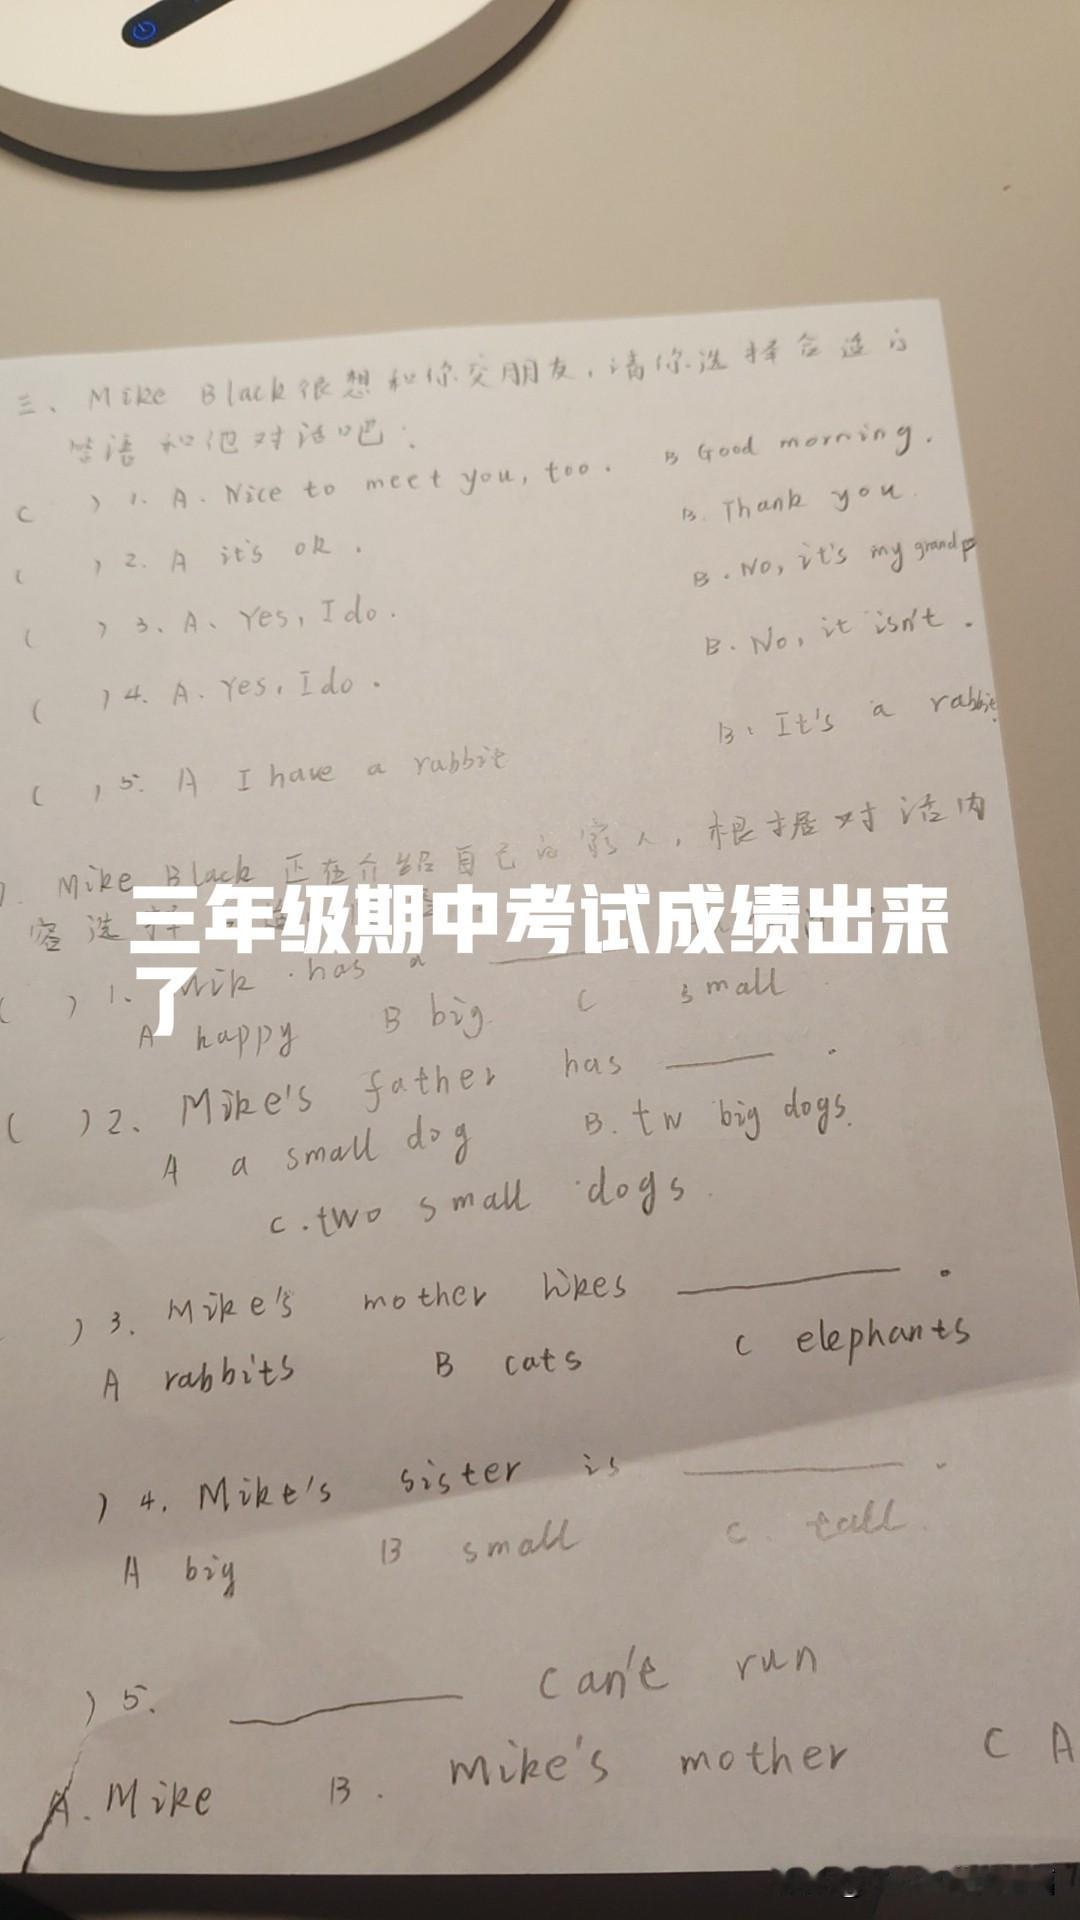 三、Mike Black很想和你交朋友，请你选择合适的
答语和他对话吧.
( ) 1. A. Nice to meet you, too. B Good morning.
( ) 2. A it's ok. B. Thank you.
( ) 3. A、Yes, I do. B. No, it's my grandp
( ) 4. A. Yes, I do. B. No, it isn't.
( ) 5. A I have a rabbit B: It's a rabbit.
Mike Black 正在介绍自己的家人，根据对话内
容选择
三年级期中考试成绩出来
了
( ) 1. Mik has a
A happy B big. C small
( ) 2. Mike's father has ______.
A a small dog B. tw big dogs.
C. two small dogs.
) 3. Mike's mother likes ______.
A rabbits B cats C elephants
) 4. Mike's sister is ______.
A big B small C. tall.
) 5. ______ can't run
A. Mike B. Mike's mother C A